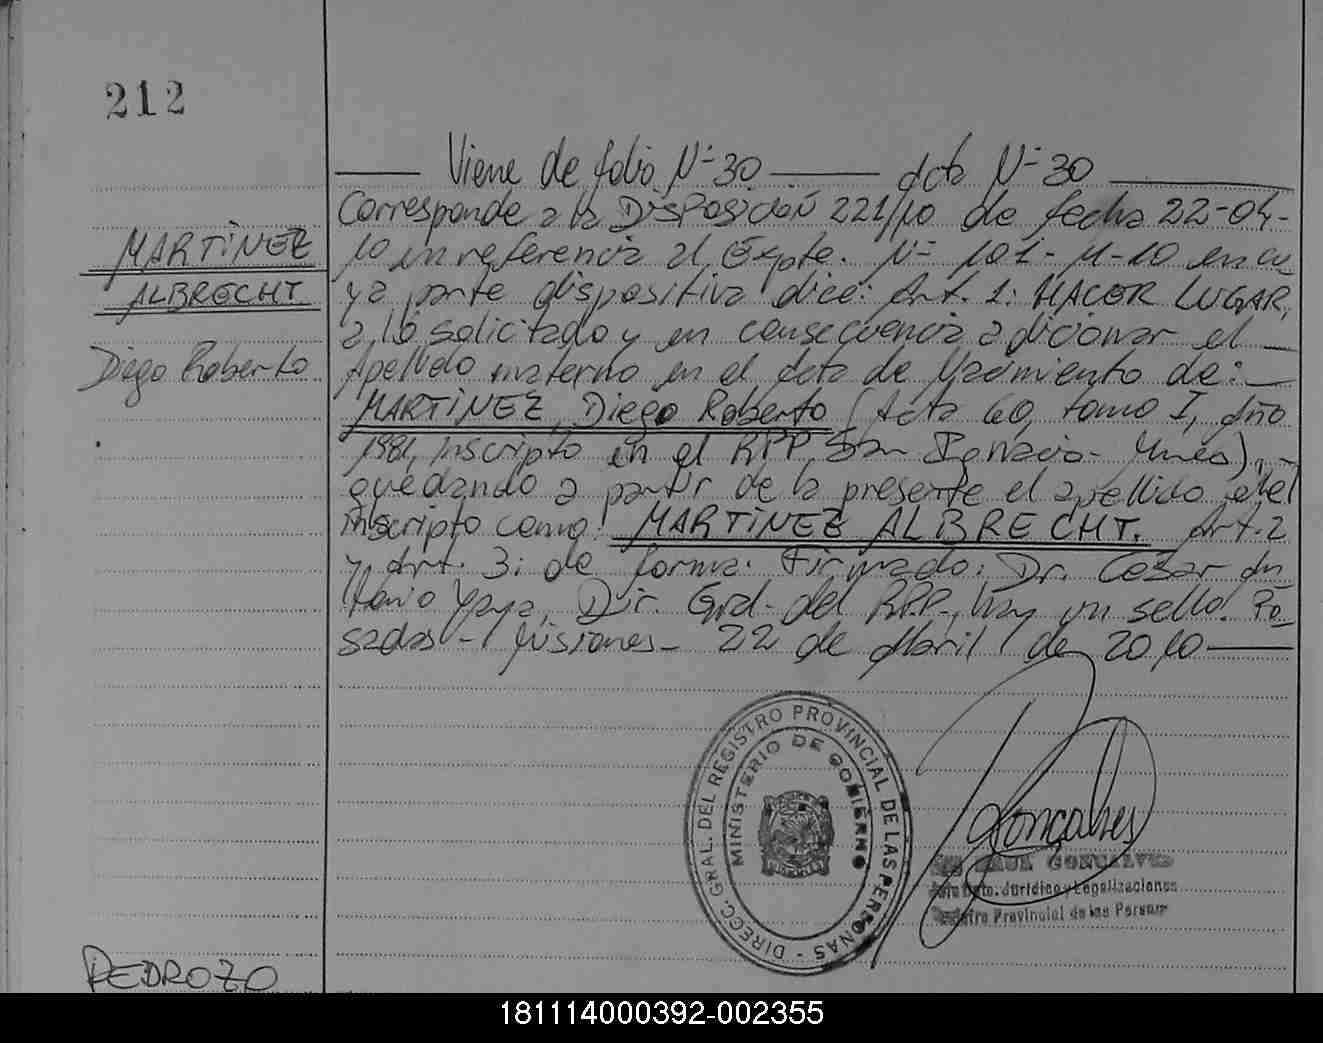 212
Viene de folio Nº 30 Acta Nº 30
MARTÍNEZ
ALBRECHT
Diego Roberto
Corresponde a la DISPOSICIÓN 221/10 de fecha 22-04-
10 en referencia al Expte. Nº 101-M-10 en cu-
ya parte dispositiva dice: Art. 1: HACER LUGAR,
a lo solicitado y en consecuencia adicionar el
Apellido materno en el Acta de Nacimiento de:
MARTÍNEZ, Diego Roberto (Acta 60, tomo I, Año
1981, inscripto en el RPP, San Ignacio-
quedando a partir de la presente el apellido del
inscripto como: MARTÍNEZ ALBRECHT. Art. 2
y Art. 3: de forma. Firmado: Dr. Cesar An
tonio Yaya, Dir. Gral. del RPP., hay un sello. Po-
sadas - Misiones - 22 de Abril de 2010
DIRECC. GRAL. DEL REGISTRO PROVINCIAL DE LAS PERSONAS -
MINISTERIO DE GOBIERNO
Gonçalves
GONÇALVES
Jurídico y Legalizaciones
Registro Provincial de las Person
PEDROZO
181114000392-002355